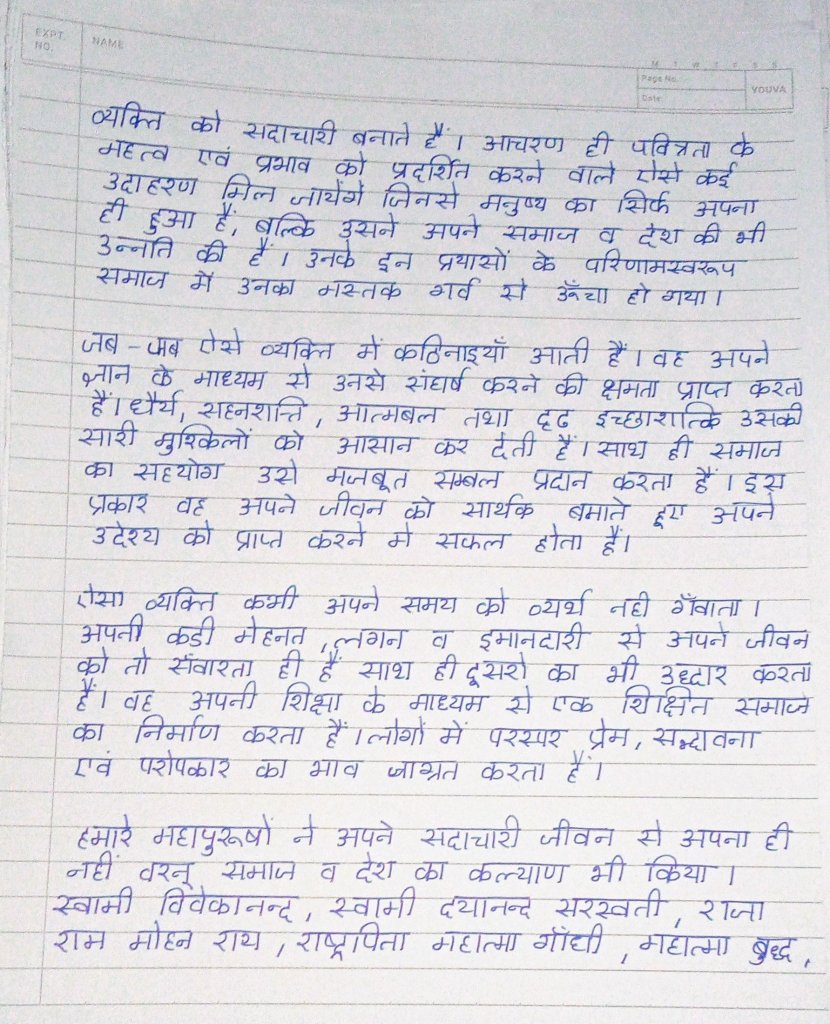 EXPT.
NO.
NAME
M T W T F S S
Page No.
Date
YOUVA
व्यक्ति को सदाचारी बनाते हैं । आचरण ही पवित्रता के
महत्व एवं प्रभाव को प्रदर्शित करने वाले ऐसे कई
उदाहरण मिल जायेंगे जिनसे मनुष्य का सिर्फ अपना
ही हुआ हैं, बल्कि उसने अपने समाज व देश की भी
उन्नति की हैं । उनके इन प्रयासों के परिणामस्वरूप
समाज में उनका मस्तक गर्व से ऊँचा हो गया ।
जब - जब ऐसे व्यक्ति में कठिनाइयाँ आती हैं । वह अपने
ज्ञान के माध्यम से उनसे संघर्ष करने की क्षमता प्राप्त करता
हैं । धैर्य, सहनशक्ति, आत्मबल तथा दृढ इच्छाशक्ति उसकी
सारी मुश्किलों को आसान कर देती हैं । साथ ही समाज
का सहयोग उसे मजबूत सम्बल प्रदान करता हैं । इस
प्रकार वह अपने जीवन को सार्थक बमाते हुए अपने
उदेश्य को प्राप्त करने मे सफल होता हैं।
ऐसा व्यक्ति कभी अपने समय को व्यर्थ नही गँवाता ।
अपनी कड़ी मेहनत, लगन व इमानदारी से अपने जीवन
को तो सँवारता ही हैं साथ ही दूसरो का भी उद्धार करता
हैं। वह अपनी शिक्षा के माध्यम से एक शिक्षित समाज
का निर्माण करता हैं । लोगों में परस्पर प्रेम, सद्भावना
एवं परोपकार का भाव जाग्रत करता हैं ।
हमारे महापुरूषों ने अपने सदाचारी जीवन से अपना ही
नहीं वरन् समाज व देश का कल्याण भी किया ।
स्वामी विवेकानन्द, स्वामी दयानन्द सरस्वती, राजा
राम मोहन राय, राष्ट्रपिता महात्मा गाँधी, महात्मा बुद्ध,